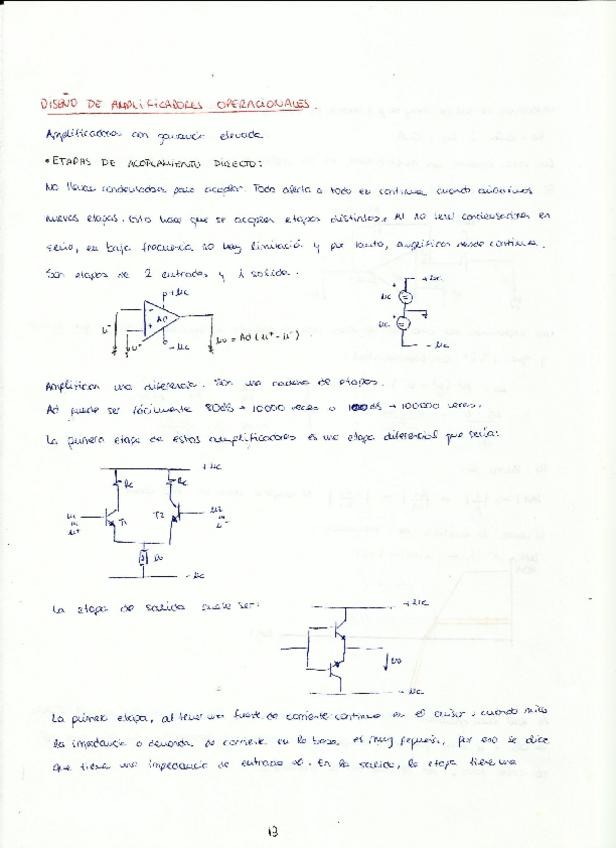 DISEÑO DE AMPLIFICADORES OPERACIONALES.
Amplificadores con ganancia elevada.
• ETAPAS DE ACOPLAMIENTO DIRECTO:
No llevan condensadores para acoplar. Todo afecta a todo en continua cuando
nuevas etapas. Esto hace que se acoplen etapas distintas. Al no tener condensadores en
serie, en baja frecuencia no hay limitació y por tanto, amplifican desde continua.
Son etapas de 2 entradas y 1 salida.
+Ucc
AO
-Ucc
U-
U+
Uo = AO (U+ - U-)
+Ucc
Ucc
Ucc
-Ucc
Amplifican una diferencia. Son una cadena de etapas.
Ad puede ser fácilmente 80dB → 10000 veces o 100dB → 100000 veces.
La primera etapa de estos amplificadores es una etapa diferencial que sería:
+Ucc
Rc
Rc
U1
U+
T1
T2
U2
U-
-Ucc
La etapa de salida suele ser:
+Ucc
Uo
-Ucc
La primera etapa, al tener una fuente de corriente continua en el emisor, cuando miro
la impedancia o demanda de corriente en la base, es muy pequeña, por eso se dice
que tiene una impedancia de entrada ∞. En la salida, la etapa tiene una
13